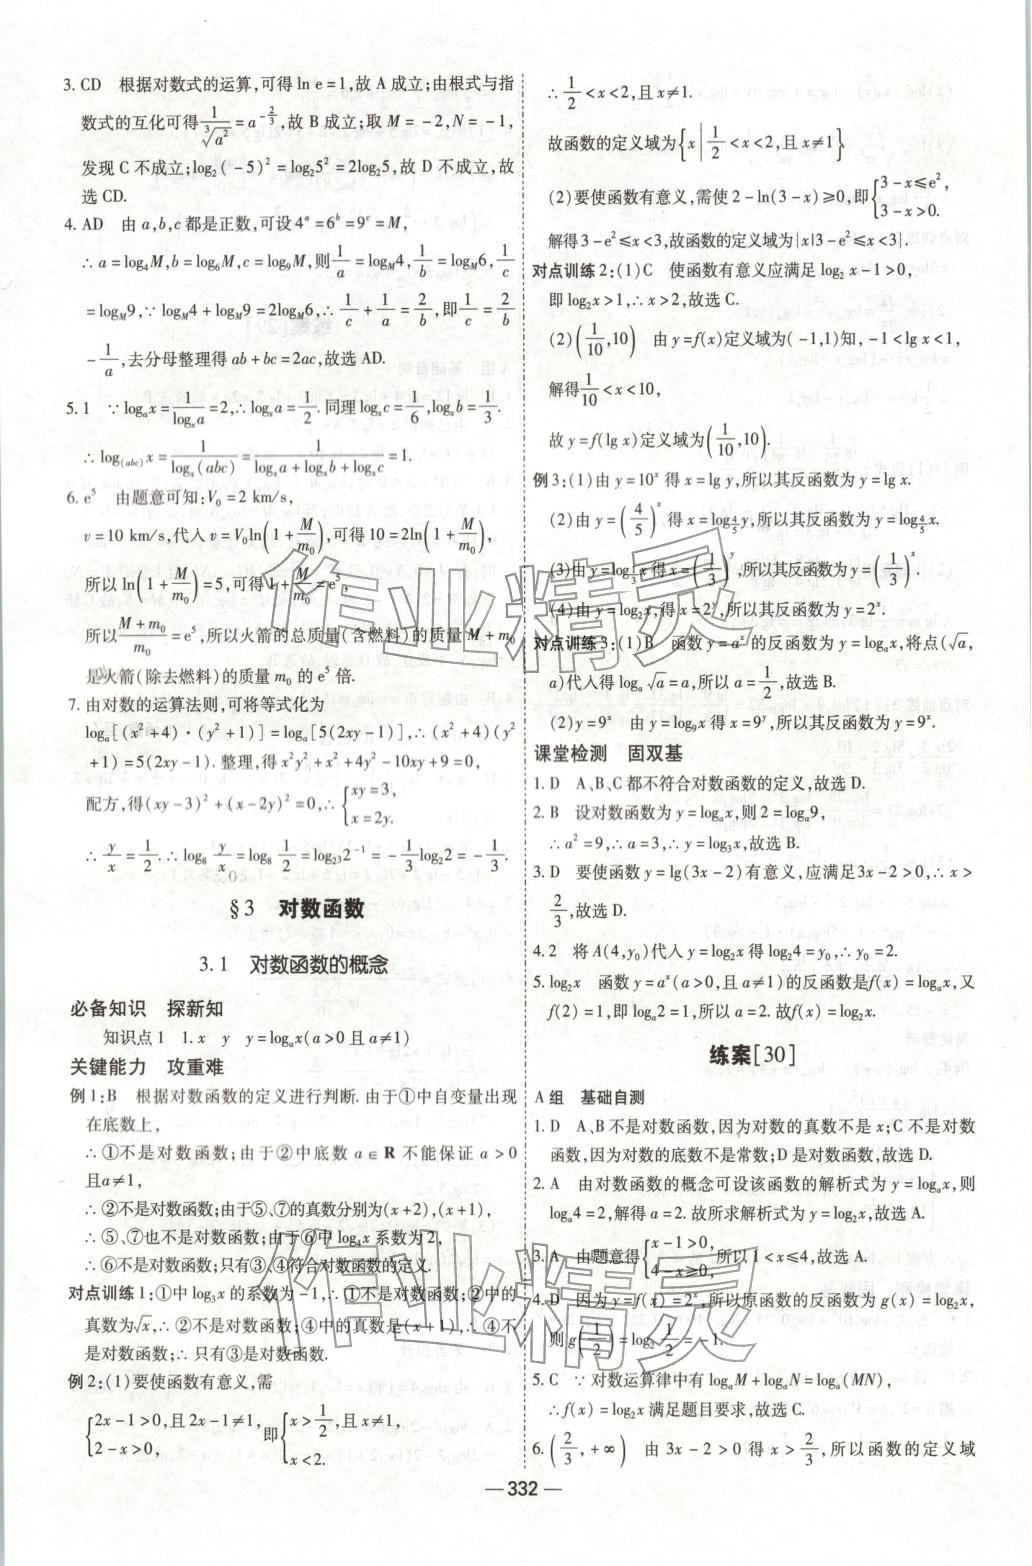 3. CD　根据对数式的运算,可得 ln e=1,故 A 成立;由根式与指
数式的互化可得 1/∛(a²)=a^(-2/3),故 B 成立;取 M=-2,N=-1,
发现 C 不成立;log₂(-5)²=log₂5²=2log₂5,故 D 不成立,故
选 CD.
4. AD　由 a,b,c 都是正数,可设 4^a=6^b=9^c=M,
∴a=log₄M,b=log₆M,c=log₉M,则 1/a=log_M4,1/b=log_M6,1/c
=log_M9,∵log_M4+log_M9=2log_M6,∴1/c+1/a=2/b,即 1/c=2/b
-1/a,去分母整理得 ab+bc=2ac,故选 AD.
5. 1　∵log_a x=1/(log_x a)=2,∴log_x a=1/2. 同理 log_x c=1/6,log_x b=1/3.
∴log_(abc) x=1/(log_x(abc))=1/(log_x a+log_x b+log_x c)=1.
6. e⁵　由题意可知:V₀=2 km/s,
v=10 km/s,代入 v=V₀ln(1+M/m₀),可得 10=2ln(1+M/m₀),
所以 ln(1+M/m₀)=5,可得 1+M/m₀=e⁵,
所以 (M+m₀)/m₀=e⁵,所以火箭的总质量(含燃料)的质量 M+m₀
是火箭(除去燃料)的质量 m₀ 的 e⁵ 倍.
7. 由对数的运算法则,可将等式化为
log_a[(x²+4)·(y²+1)]=log_a[5(2xy-1)],∴(x²+4)(y²
+1)=5(2xy-1). 整理,得 x²y²+x²+4y²-10xy+9=0,
配方,得(xy-3)²+(x-2y)²=0,∴{xy=3, x=2y.
∴y/x=1/2. ∴log₈ y/x=log₈ 1/2=log_(2³)2⁻¹=-1/3 log₂2=-1/3.
§3　对数函数
3.1　对数函数的概念
必备知识　探新知
知识点1　1. x　y　y=log_a x(a>0 且 a≠1)
关键能力　攻重难
例1:B　根据对数函数的定义进行判断. 由于①中自变量出现
在底数上,
∴①不是对数函数;由于②中底数 a∈R 不能保证 a>0
且a≠1,
∴②不是对数函数;由于⑤、⑦的真数分别为(x+2),(x+1),
∴⑤、⑦也不是对数函数;由于⑥中 log₄x 系数为 2,
∴⑥不是对数函数;只有③、④符合对数函数的定义.
对点训练1:①中 log₃x 的系数为 -1,∴①不是对数函数;②中的
真数为√x,∴②不是对数函数;④中的真数是(x+1),∴④不
是对数函数;∴只有③是对数函数.
例2:(1)要使函数有意义,需
{2x-1>0,且 2x-1≠1, 2-x>0, 即{x>1/2,且 x≠1, x<2.
∴1/2<x<2,且 x≠1.
故函数的定义域为{x|1/2<x<2,且 x≠1}
(2)要使函数有意义,需使 2-ln(3-x)≥0,即{3-x≤e², 3-x>0.
解得 3-e²≤x<3,故函数的定义域为{x|3-e²≤x<3}.
对点训练2:(1)C　使函数有意义应满足 log₂x-1>0,
即 log₂x>1,∴x>2,故选 C.
(2)(1/10,10)　由 y=f(x)定义域为(-1,1)知,-1<lg x<1,
解得 1/10<x<10,
故 y=f(lg x)定义域为(1/10,10).
例3:(1)由 y=10^x 得 x=lg y,所以其反函数为 y=lg x.
(2)由 y=(4/5)^x 得 x=log_(4/5)y,所以其反函数为 y=log_(4/5)x.
(3)由 y=log_(1/3)x 得 x=(1/3)^y,所以其反函数为 y=(1/3)^x.
(4)由 y=log₂x,得 x=2^y,所以其反函数为 y=2^x.
对点训练3:(1)B　函数 y=a^x 的反函数为 y=log_a x,将点(√a,
a)代入得 log_a√a=a,所以 a=1/2,故选 B.
(2)y=9^x　由 y=log₉x 得 x=9^y,所以其反函数为 y=9^x.
课堂检测　固双基
1. D　A、B、C 都不符合对数函数的定义,故选 D.
2. B　设对数函数为 y=log_a x,则 2=log_a 9,
∴a²=9,∴a=3,∴y=log₃x,故选 B.
3. D　要使函数 y=lg(3x-2)有意义,应满足3x-2>0,∴x>
2/3,故选 D.
4. 2　将 A(4,y₀)代入 y=log₂x 得 log₂4=y₀,∴y₀=2.
5. log₂x　函数 y=a^x(a>0,且 a≠1)的反函数是f(x)=log_a x,又
f(2)=1,即 log_a 2=1,所以 a=2. 故f(x)=log₂x.
练案[30]
A 组　基础自测
1. D　A、B 不是对数函数,因为对数的真数不是 x;C 不是对数
函数,因为对数的底数不是常数;D 是对数函数,故选 D.
2. A　由对数函数的概念可设该函数的解析式为 y=log_a x,则
log_a 4=2,解得 a=2. 故所求解析式为 y=log₂x,故选 A.
3. A　由题意得{x-1>0, 4-x≥0,所以 1<x≤4,故选 A.
4. D　因为 y=f(x)=2^x,所以原函数的反函数为 g(x)=log₂x,
则 g(1/2)=log₂ 1/2=-1.
5. C　∵对数运算律中有 log_a M+log_a N=log_a(MN),
∴f(x)=log₂x 满足题目要求,故选 C.
6. (2/3,+∞)　由 3x-2>0 得 x>2/3,所以函数的定义域
— 332 —
作业精灵
作业精灵